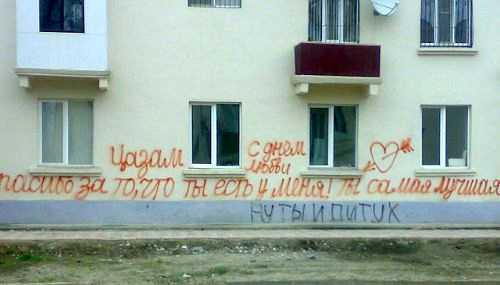 Цазам с днем
любви
пасибо за то, что ты есть у меня! Ты самая лучшая
НУ ТЫ И ПИТУК